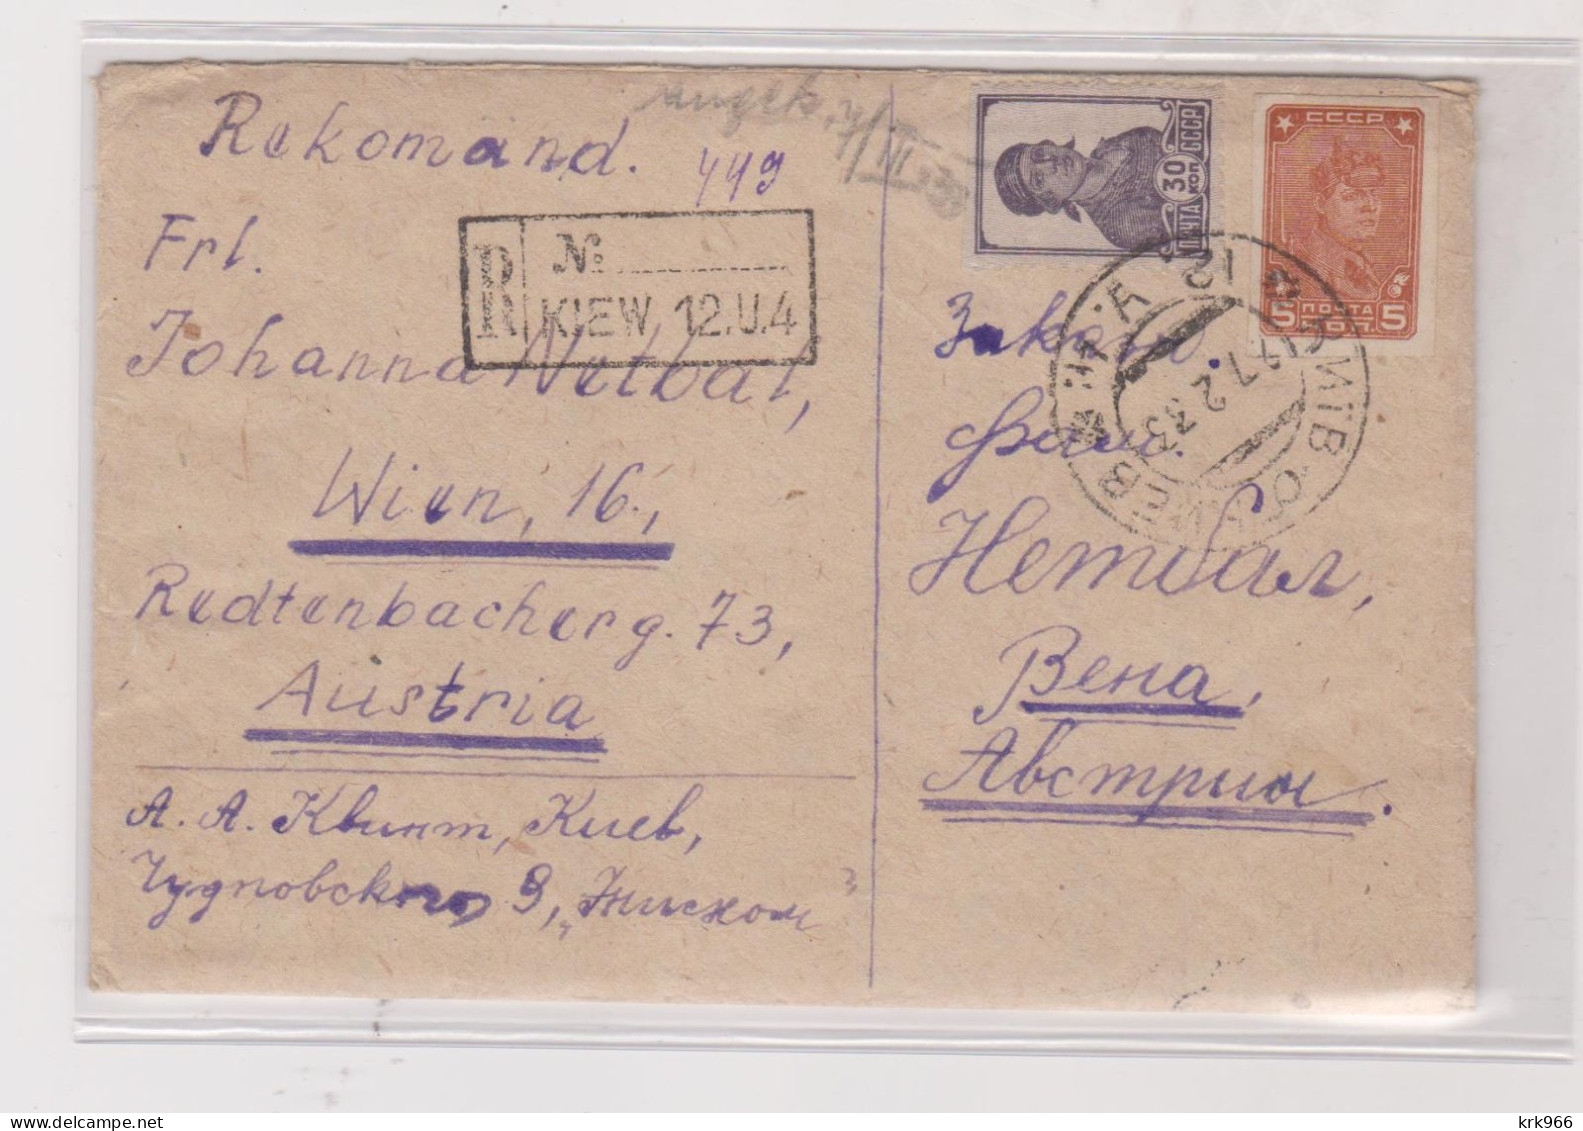 Rekomand.
449
Frl.
Johanna Netbal,
Wien, 16.,
Redtenbacherg. 73,
Austria
А. А. Квинт, Киев,
Чудновского 9,
R
№:
KIEW 12.U.4
ПОЧТА 30 КОП СССР
СССР
5 ПОЧТА 5
КОП.
КИЇВ
КИЕВ
2 33
Заказн.
Фрл.
Нетбал,
Вена,
Австрия.
krk966